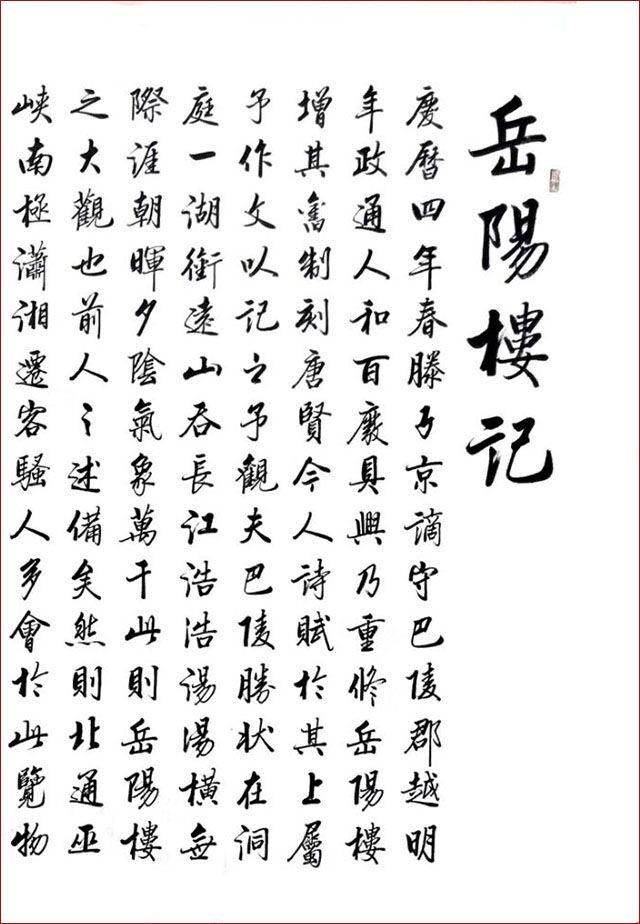 岳陽樓記
慶曆四年春滕子京謫守巴陵郡越明
年政通人和百廢具興乃重修岳陽樓
增其舊制刻唐賢今人詩賦於其上屬
予作文以記之予觀夫巴陵勝狀在洞
庭一湖銜遠山吞長江浩浩湯湯橫無
際涯朝暉夕陰氣象萬千此則岳陽樓
之大觀也前人之述備矣然則北通巫
峽南極瀟湘遷客騷人多會於此覽物